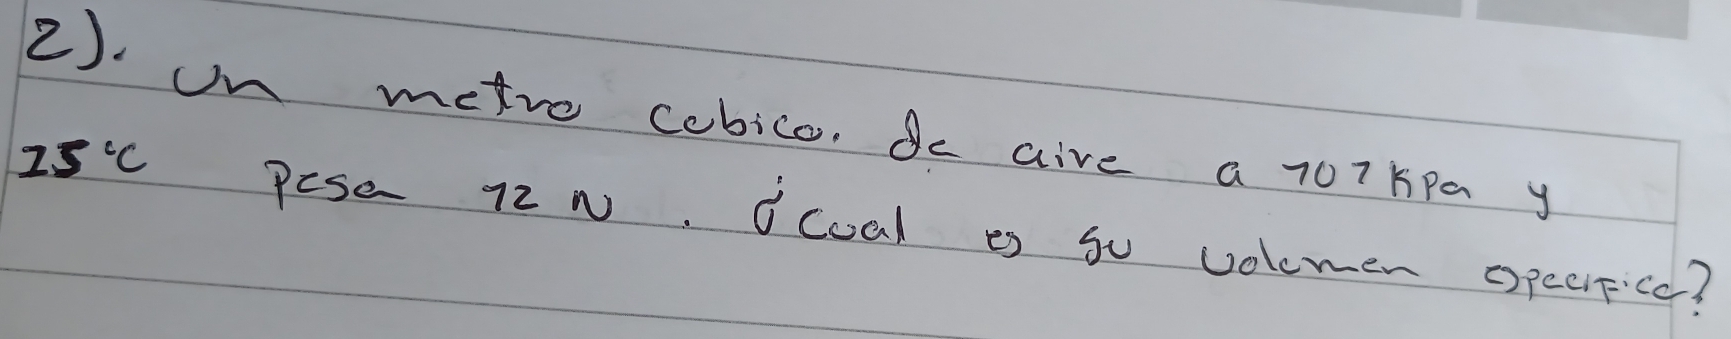 2). Un metro cubico. de aire a 101 Kpa y
15°C pesa 12 N. ¿Cual es su volumen especifico?